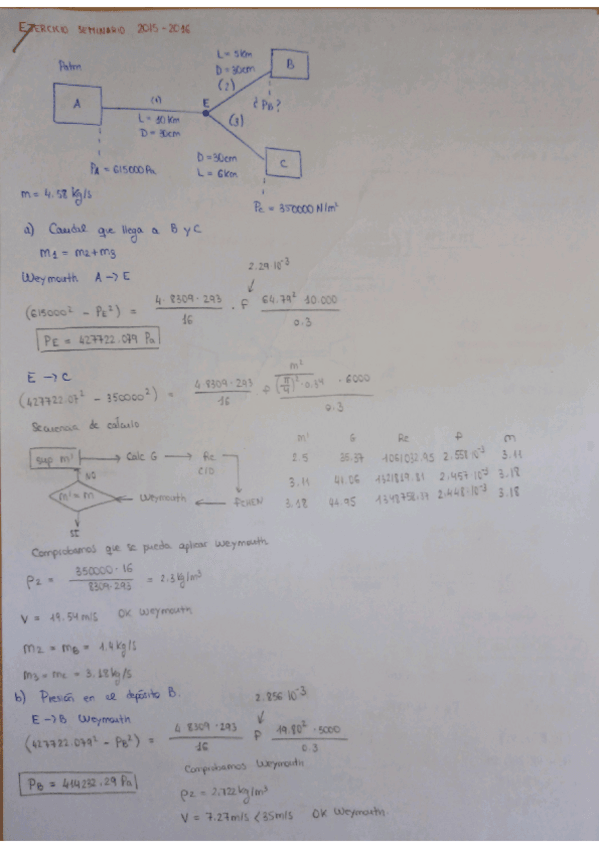 EJERCICIO SEMINARIO 2015-2016
Patm
A
(1)
L = 10 Km
D = 30cm
E
L = 5km
D = 30cm
(2)
B
¿PB?
(3)
D = 30cm
L = 6km
C
PA = 615000 Pa
Pc = 350000 N/m²
m = 4.58 kg/s
a) Caudal que llega a B y C
m1 = m2+m3
Weymouth A → E
2.29·10⁻³
(615000² - PE²) = 4·8309·293 / 16 · f 64.79² 10.000 / 0.3
PE = 427722.079 Pa
E → C
(427722.07² - 350000²) = 4·8309·293 / 16 f m² / (π/4)² · 0.3⁴ · 6000 / 0.3
Secuencia de calculo
sup m' → Calc G → Re
E/D
NO
m' = m ← Weymouth ← fCHEN
SI
m' G Re f m
2.5 35.37 1061032.95 2.558 10⁻³ 3.11
3.11 1321819.81 2.457·10⁻³ 3.18
3.18 44.95 2.448·10⁻³ 3.18
Comprobamos que se pueda aplicar Weymouth
ρ2 = 350000·16 / 8309·293 = 2.3 kg/m³
V = 19.54 m/s OK Weymouth
m2 = mB = 1.4 kg/s
m3 = mc = 3.18 kg/s
b) Presión en el depósito B.
2.856 10⁻³
E → B Weymouth
(427722.079² - PB²) = 4 8309·293 / 16 f 19.80² · 5000 / 0.3
PB = 414232.29 Pa
Comprobamos Weymouth
ρ2 = 2.722 kg/m³
V = 7.27 m/s < 35 m/s OK Weymouth